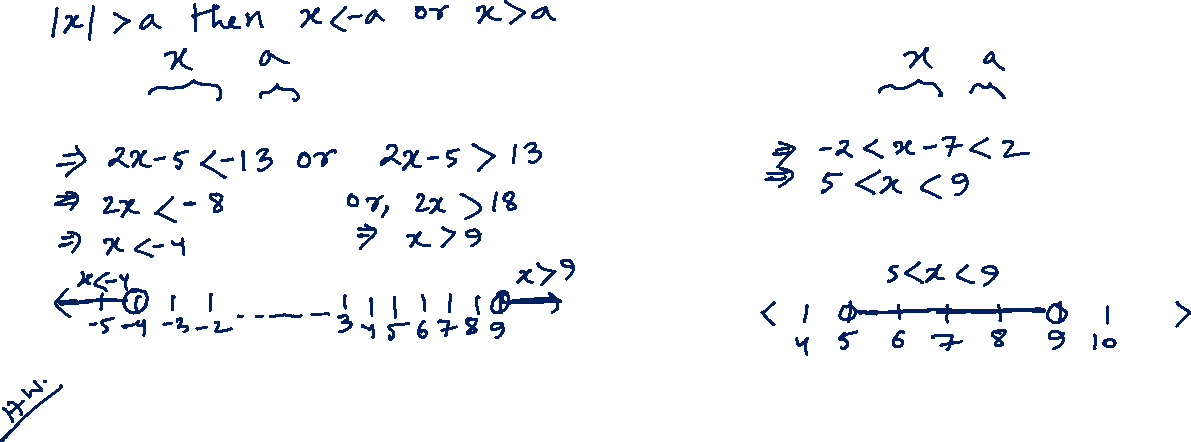 |x| > a then x < -a or x > a
x a
⇒ 2x-5 < -13 or 2x-5 > 13
⇒ 2x < -8 or, 2x > 18
⇒ x < -4 ⇒ x > 9
x < -4 x > 9
-5 -4 -3 -2 ........ 3 4 5 6 7 8 9
x a
⇒ -2 < x-7 < 2
⇒ 5 < x < 9
5 < x < 9
4 5 6 7 8 9 10
H.W.